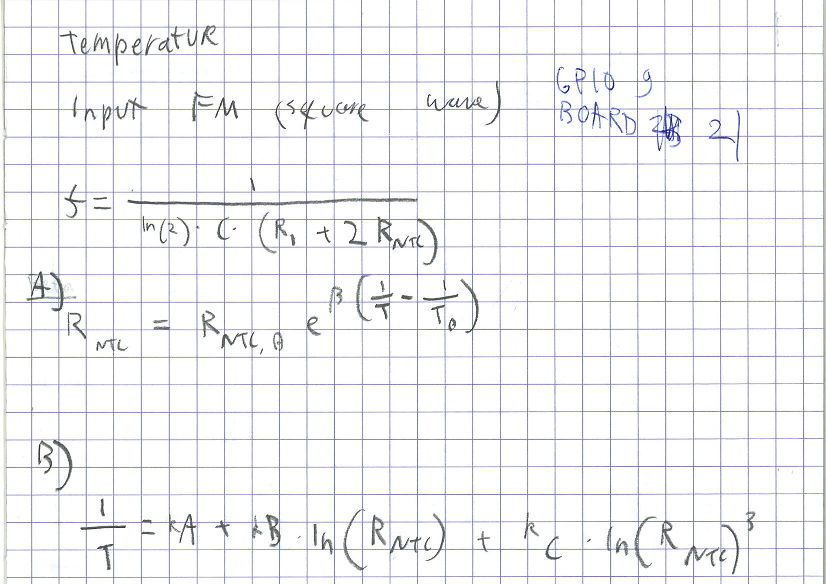 TemperatUR
Input FM (square wave)
GPIO 9
BOARD 21
f = 1 / (ln(2) · C · (R₁ + 2 R_NTC))
A)
R_NTC = R_NTC,0 e^(β(1/T - 1/T₀))
B)
1/T = kA + kB · ln(R_NTC) + k_C · ln(R_NTC)³